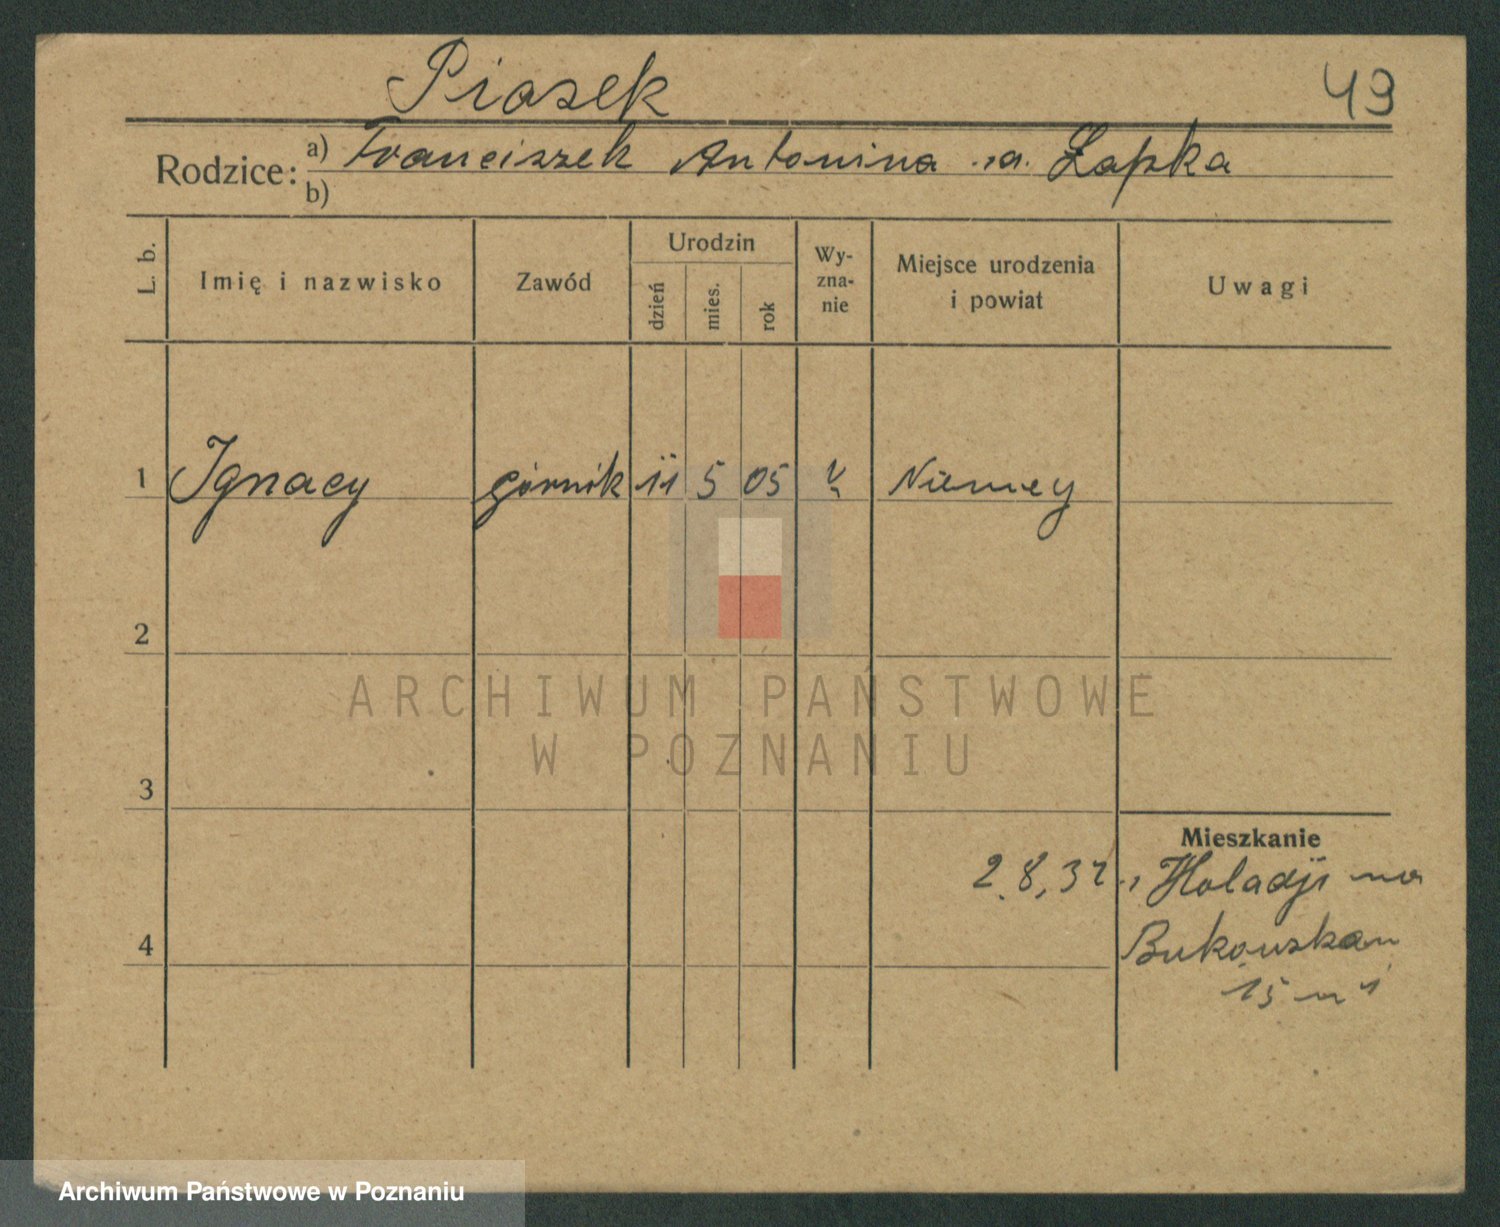 Piasek
49
Rodzice: a) Franciszek Antonina .ra. Łapka
b)
L. b. Imię i nazwisko Zawód Urodzin dzień mies. rok Wyznanie Miejsce urodzenia i powiat Uwagi
1 Ignacy górnik 11 5 05 Niemcy
2
ARCHIWUM PAŃSTWOWE
W POZNANIU
3
Mieszkanie
2.8.32
4 Bukowska
15 m 1
Archiwum Państwowe w Poznaniu